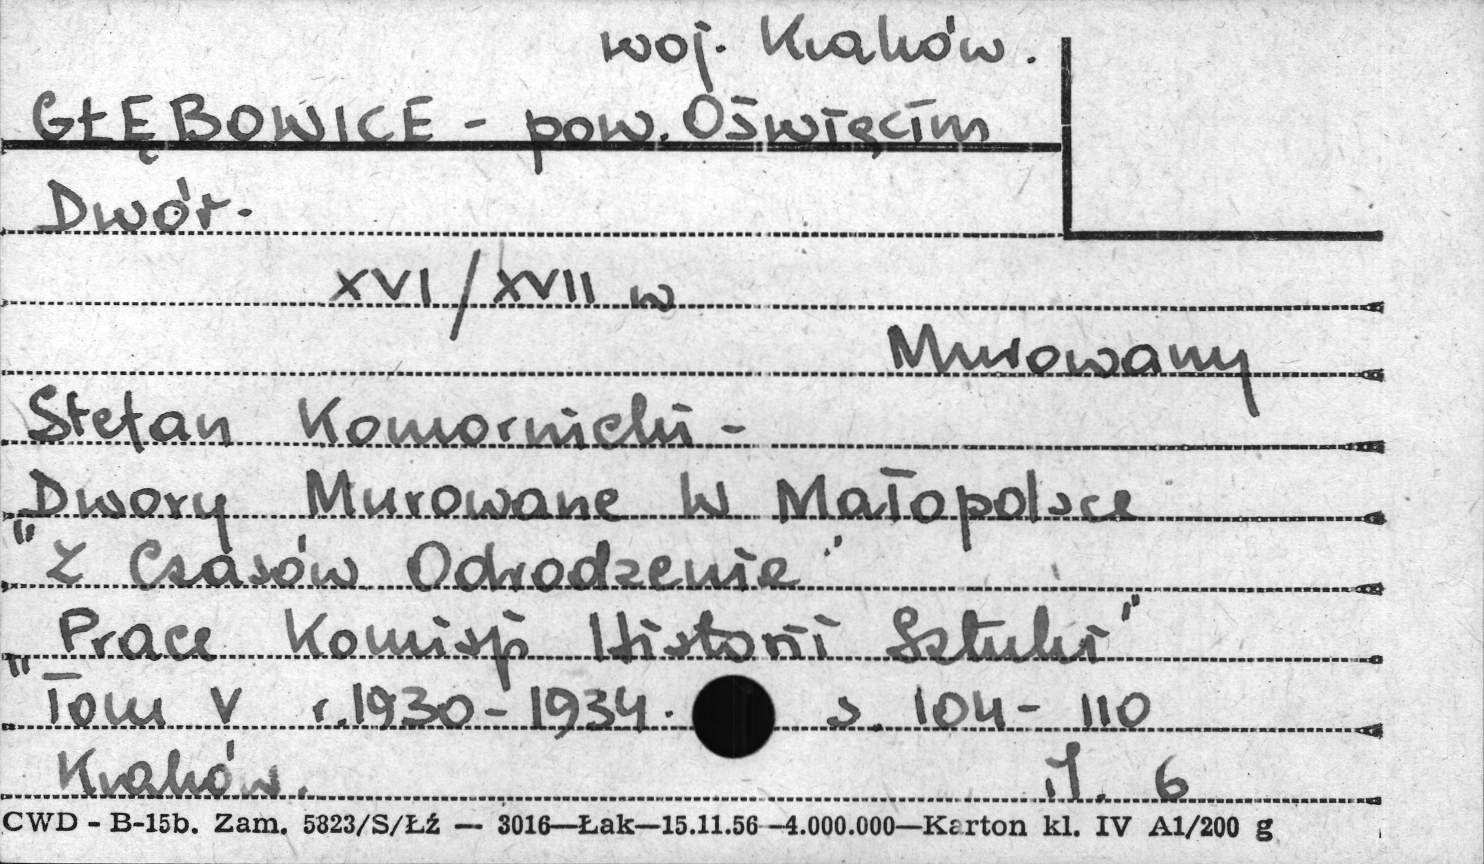 woj. Kraków.
GŁĘBOWICE - pow. Oświęcim
Dwór.
XVI/XVII w
Murowany
Stefan Komornicki -
Dwory Murowane W Małopolsce
"Z Czasów Odrodzenie"
Prace Komisji Historii Sztuki"
"Tom V r. 1930-1934. s. 104- 110
Kraków. il. 6
CWD - B-15b. Zam. 5823/S/Łź — 3016—Łak—15.11.56 —4.000.000—Karton kl. IV A1/200 g